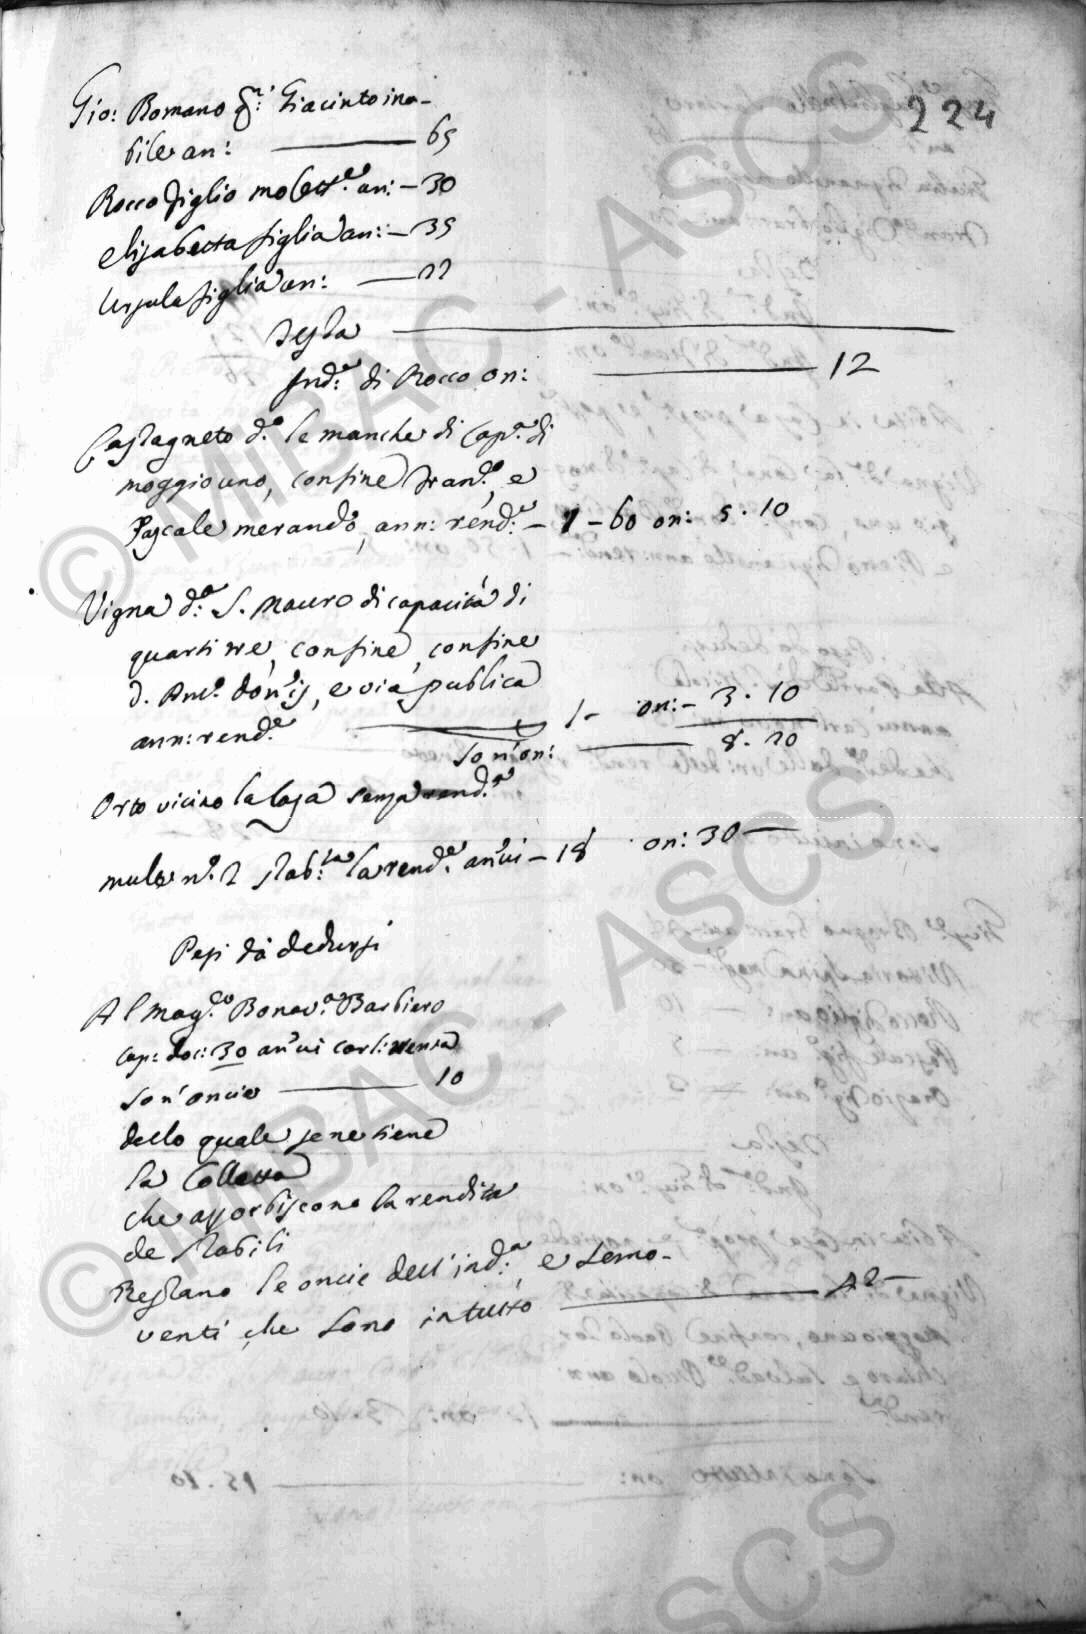 224
Gio: Romano qm: Giacinto ina-
bile an: 65
Rocco figlio molatt.e an: - 30
Elisabetta figlia an: - 35
Ursula figlia an: 22
Testa
Ind.a di Rocco on: 12
Castagneto d.o le manche di Cap.a di
moggio uno, confine Fran.o, e
Pascale merando, ann: rend.a - 1 - 60 on: 5.10
Vigna d.a S. Mauro di capacità di
quarti tre, confine, confine
D. Ant.o , e via publica
ann: rend.a 1 - on: - 3.10
Son'on: 8.20
Orto vicino la Casa senza rend.a
mule n.o 2 stab.ta la rend.a an'ui - 18 on: 30
Pesi da dedursi
Al Mag.co Bonav.a Barbiero
Cap: doc: 30 an'ui carl: trenta
Son'oncie 10
dello quale se ne tiene
la Colletta
che assorbiscono la rendita
de Stabili
Restano le oncie dell'ind.a e Semo-
venti che sono in tutto 42
© MiBAC - ASCS
© MiBAC - ASCS